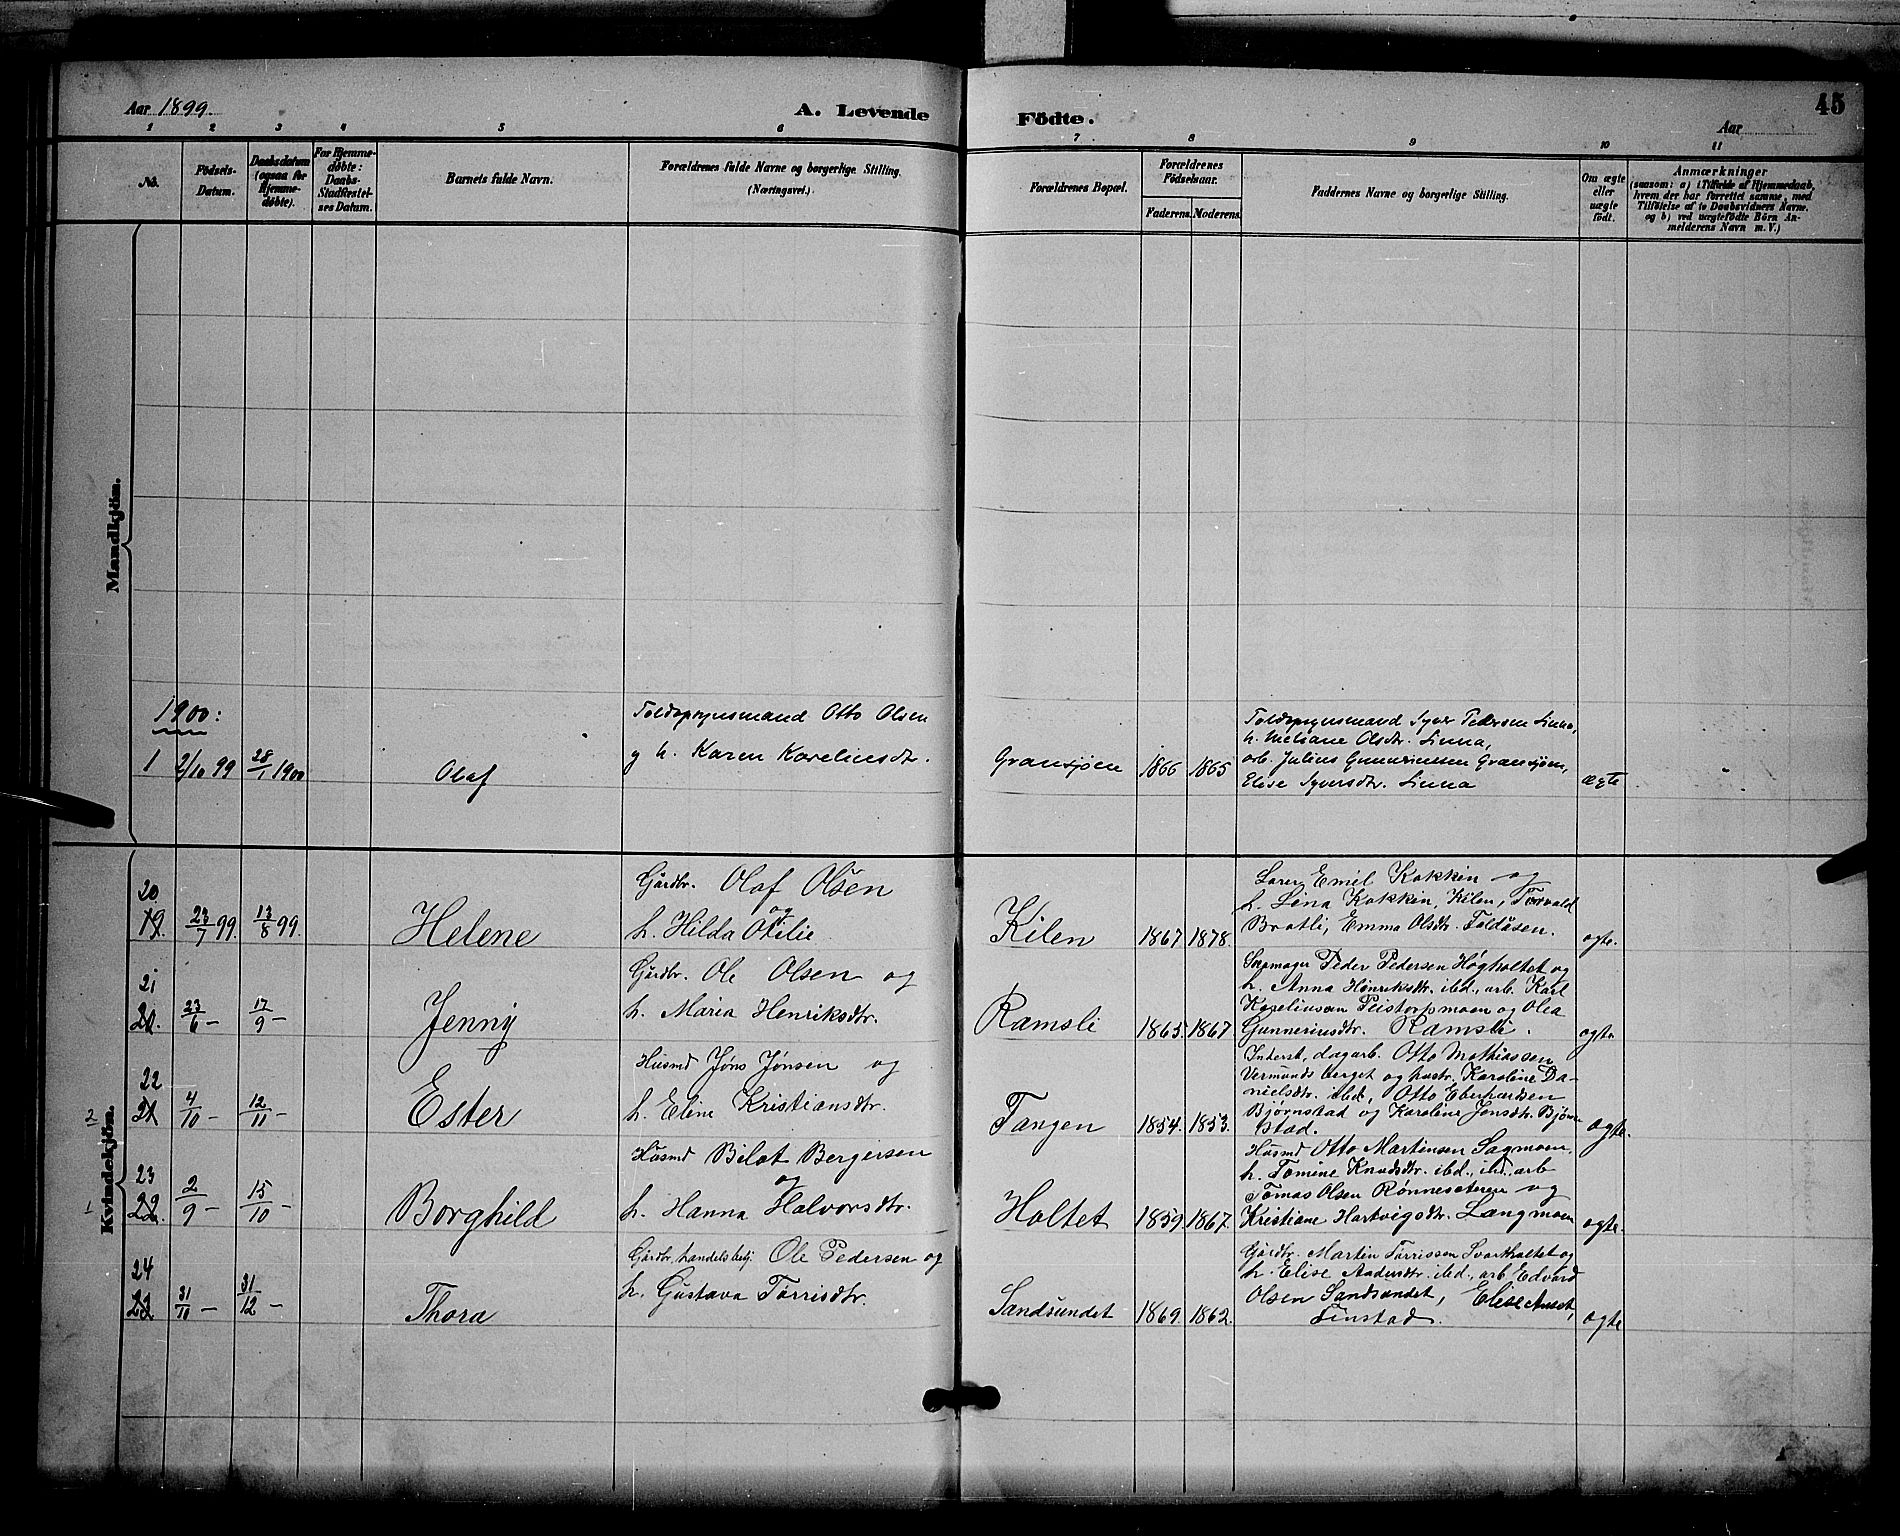 Aar 1899.
A. Levende
Födte.
Aar
45
1 2 3 4 5 6 7 8 9 10 11
No.
Födsels-
Datum.
Daabsdatum
(ogsaa for
Hjemme-
døbte).
For Hjemme-
døbte:
Daabs-
Stadfæstel-
ses Datum.
Barnets fulde Navn.
Forældrenes fulde Navne og borgerlige Stilling.
(Næringsvei.)
Forældrenes Bopæl.
Forældrenes
Födselsaar.
Faderens. Moderens.
Faddernes Navne og borgerlige Stilling.
Om ægte
eller
uægte
født.
Anmærkninger
(saasom: a) i Tilfælde af Hjemmedaab,
hvem der har forrettet samme, med
Tilføielse af to Daabsvidners Navne,
og b) ved uægtefödte Börn An-
melderens Navn m. V.)
Mandkjön.
1900:
1 2/10 99 28/1 1900
Olaf
Otto Olsen
og h. Karen Kareliusdt.
Gransjøen 1866 1865
Syver Pedersen Linna,
h. Meliane Olsdtr. Linna,
arb. Julius Gunneriussen Gransjøen,
Elise Syversdtr. Linna
ægte
Kvindekjön.
20
19. 23/7 99. 13/8 99.
Helene
Gårdbr. Olaf Olsen
og
h. Hilda Otilie
Kilen 1867 1878.
Lærer Emil Kokkin og
h. Lina Kokkin, Kilen, Torvald
Bratli, Emma Olsdtr. Foldåsen.
ægte.
21
20. 23/6 – 17/9 –
Jenny
Gårdbr. Ole Olsen og
h. Maria Henriksdtr.
Ramsli 1865. 1867
Skomager Peder Pedersen Høgholtet og
h. Anna Henriksdtr. ibd., arb. Karl
Kareliusen Peistorpmoen og Olea
Gunneriusdtr. Ramsli.
ægte
2
22
21 4/10 – 12/11 –
Ester
Husmd Jøns Jønsen og
h. Eline Kristiansdtr.
Tangen 1854. 1853.
Inderst, dagarb. Otto Mathiassen
Vermundsberget og hustr. Karoline Da-
nielsdtr. ibd., Otto Eberhardsen
Bjørnstad og Karoline Jonsdtr. Bjørn-
stad.
ægte.
1
23
22. 2/9 – 15/10 –
Borghild
Husmd Belat Bergersen
og
h. Hanna Halvorsdtr.
Holtet 1859 1867.
Husmd Otto Martinsen Sagmoen,
h. Tomine Knudsdtr. ibd., arb
Tomas Olsen Rønneseteren og
Kristiane Hartvigsdtr. Langmoen
ægte.
24
23 31/10 – 31/12 –
Thora
Gårdbr, handelsbetj. Ole Pedersen og
h. Gustava Tørrisdtr.
Sandsundet 1869. 1862.
Gårdbr. Martin Tørrissen Svartholtet og
h. Elise Andersdtr. ibd., arb Edvard
Olsen Sandsundet, Elise
Finstad.
ægte